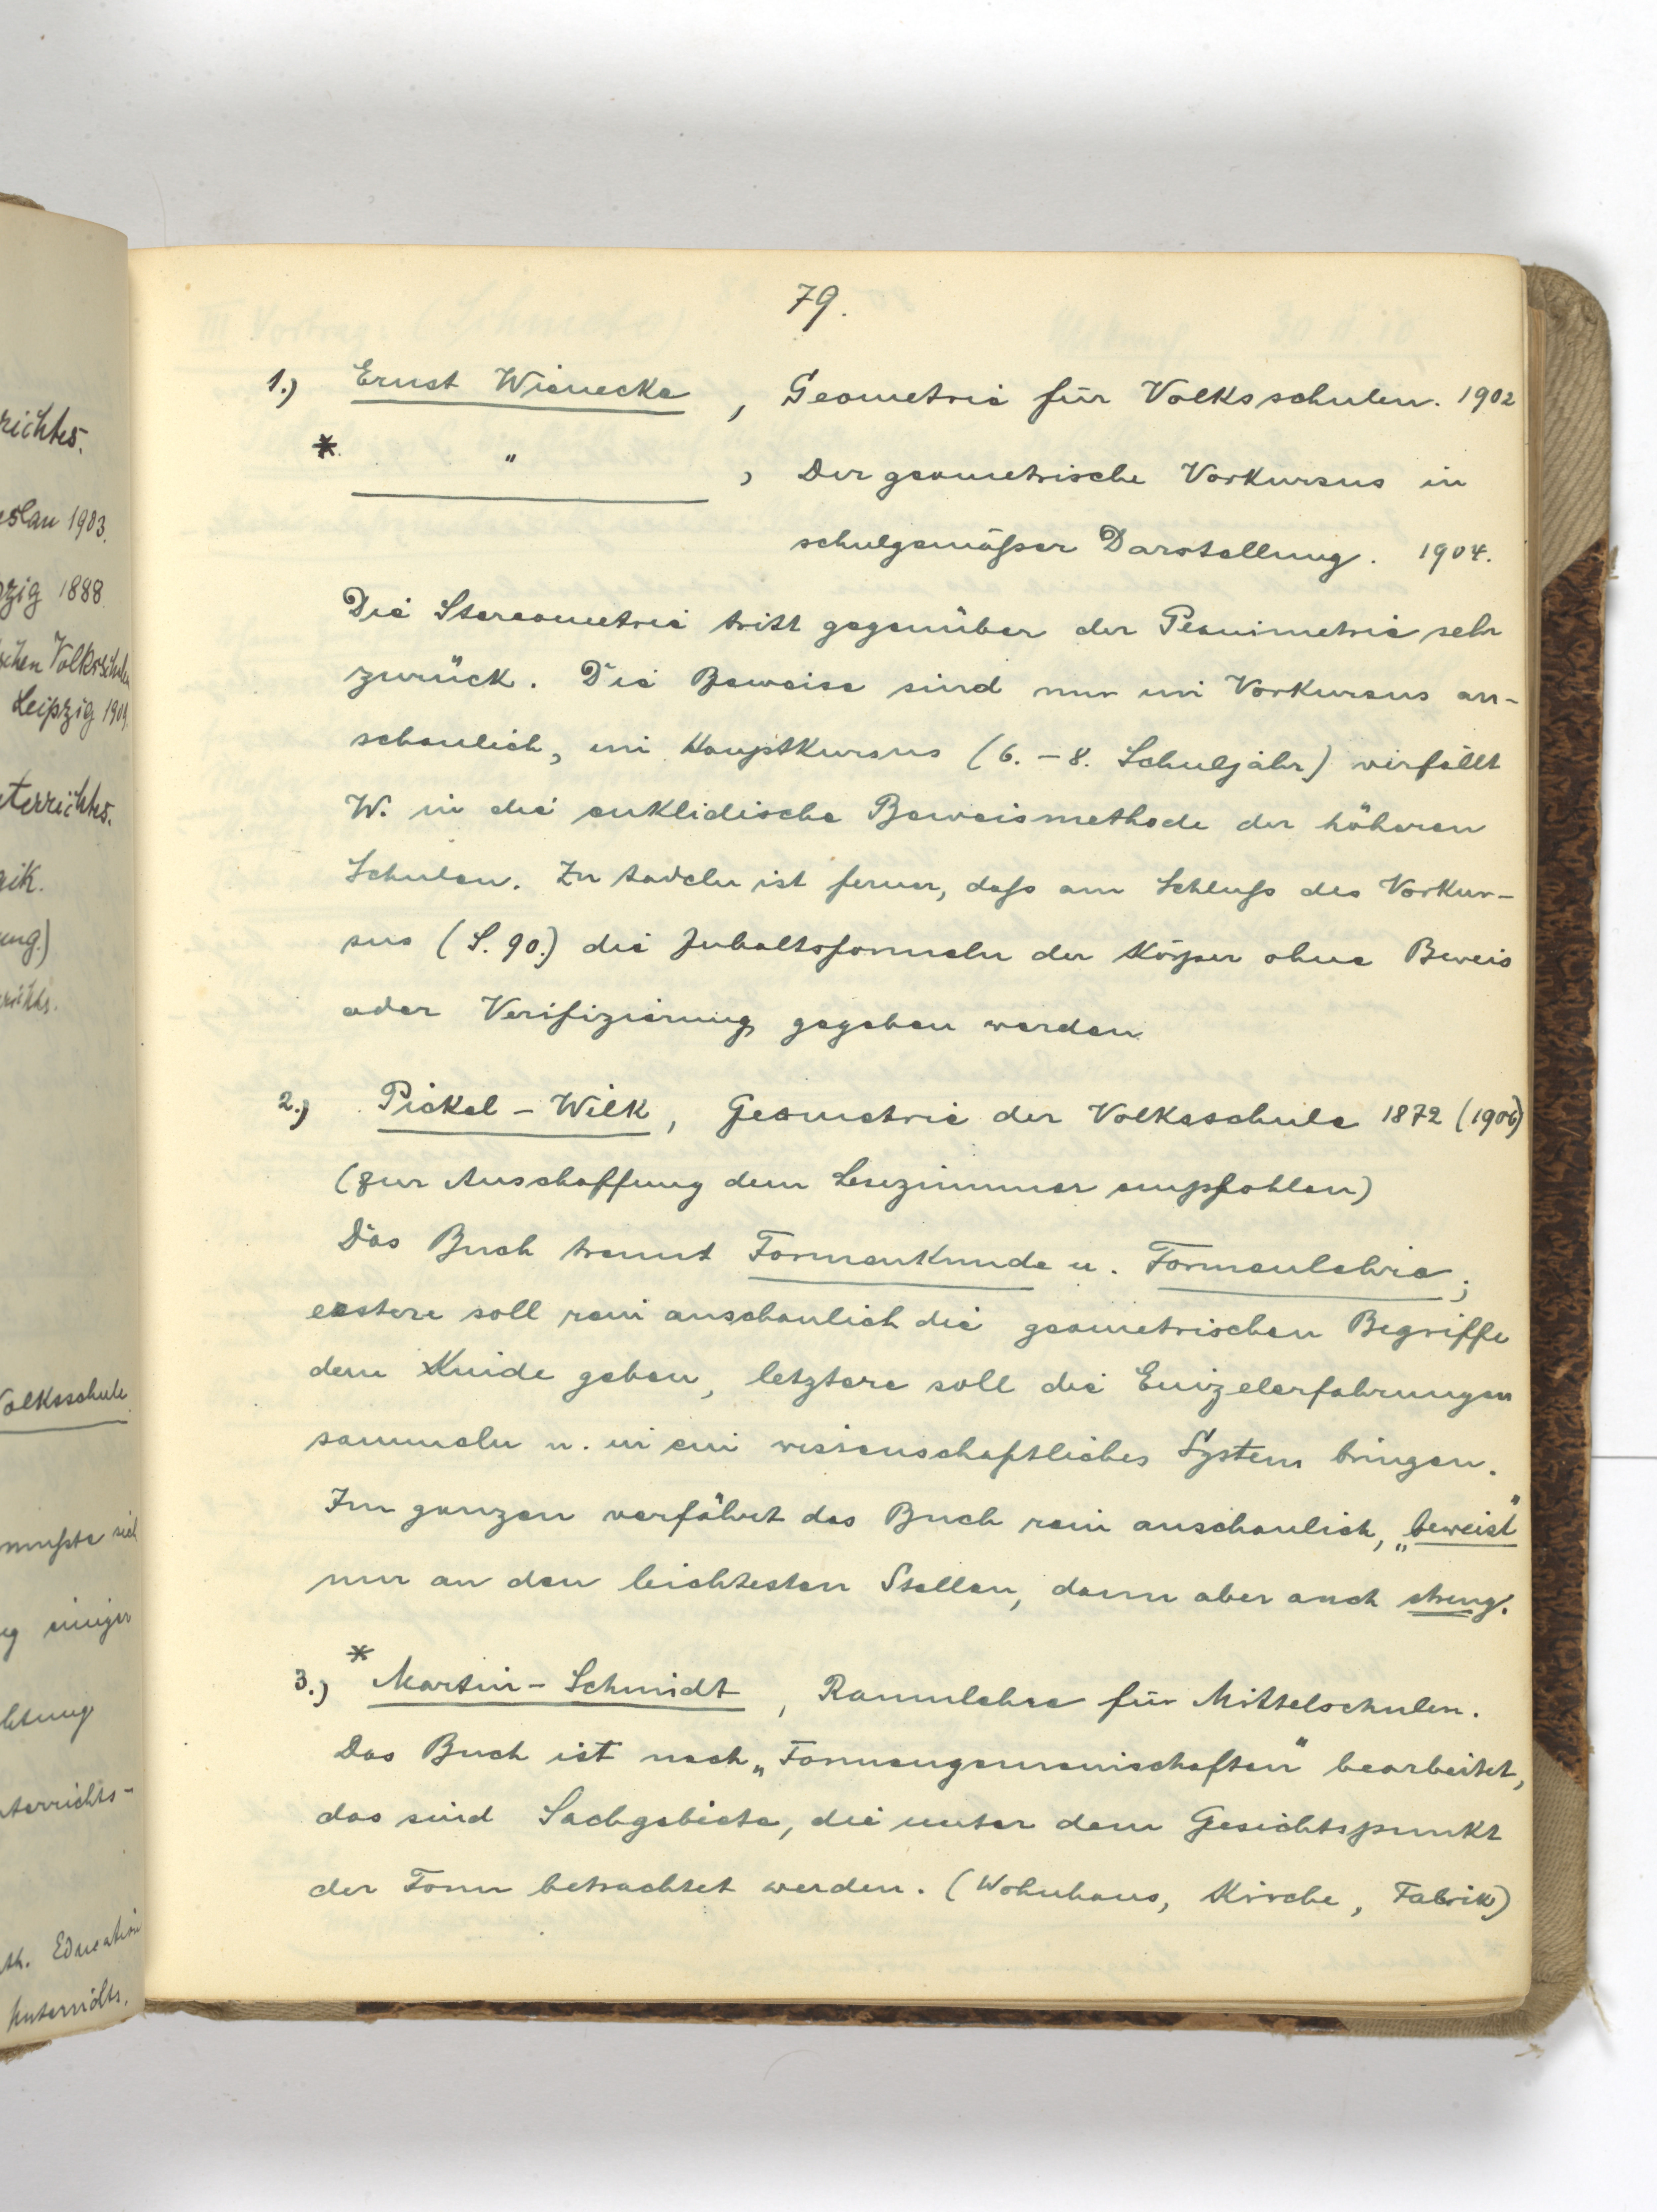 richtes.
eslau 1903.
pzig 1888
schen Volksschulen
Leipzig 1909.
terrichtes.
gik.
ung.)
richts.
Volksschule
musste sich
ng einiger
htung
nterrichts-
th. Education
Unterrichts.
79.
1.) Ernst Wienecke, Geometrie für Volksschulen. 1902
* " , Der geometrische Vorkursus in
schulgemäßer Darstellung. 1904.
Die Stereometrie tritt gegenüber der Planimetrie sehr
zurück. Die Beweise sind nur im Vorkursus an-
schaulich, im Hauptkursus (6. – 8. Schuljahr) verfällt
W. in die euklidische Beweismethode der höheren
Schulen. Zu tadeln ist ferner, daß am Schluß des Vorkur-
sus (S. 90.) die Inhaltsformeln der Körper ohne Beweis
oder Verifizierung gegeben werden
2.) Pickel – Wilk, Geometrie der Volksschule 1872 (1906)
(zur Anschaffung dem Lesezimmer empfohlen)
Das Buch trennt Formenkunde u. Formenlehre;
erstere soll rein anschaulich die geometrischen Begriffe
dem Kinde geben, letztere soll die Einzelerfahrungen
sammeln u. in ein wissenschaftliches System bringen.
Im ganzen verfährt das Buch rein anschaulich, „beweist"
nur an den leichtesten Stellen, dann aber auch streng.
3.) * Martin – Schmidt, Raumlehre für Mittelschulen.
Das Buch ist nach „Formengemeinschaften" bearbeitet,
das sind Sachgebiete, die unter dem Gesichtspunkt
der Form betrachtet werden. (Wohnhaus, Kirche, Fabrik)